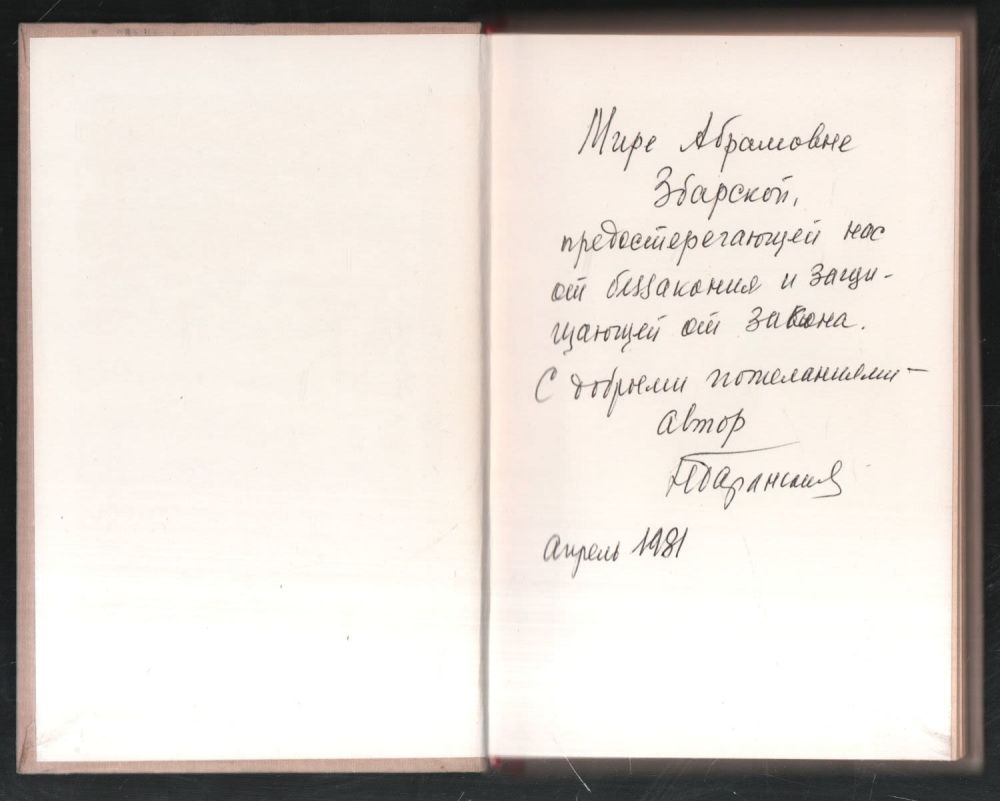 Мире Абрамовне
Збарской,
предостерегающей нас
от беззакония и защи-
щающей от закона.
С добрыми пожеланиями –
автор
НБаранская
Апрель 1981